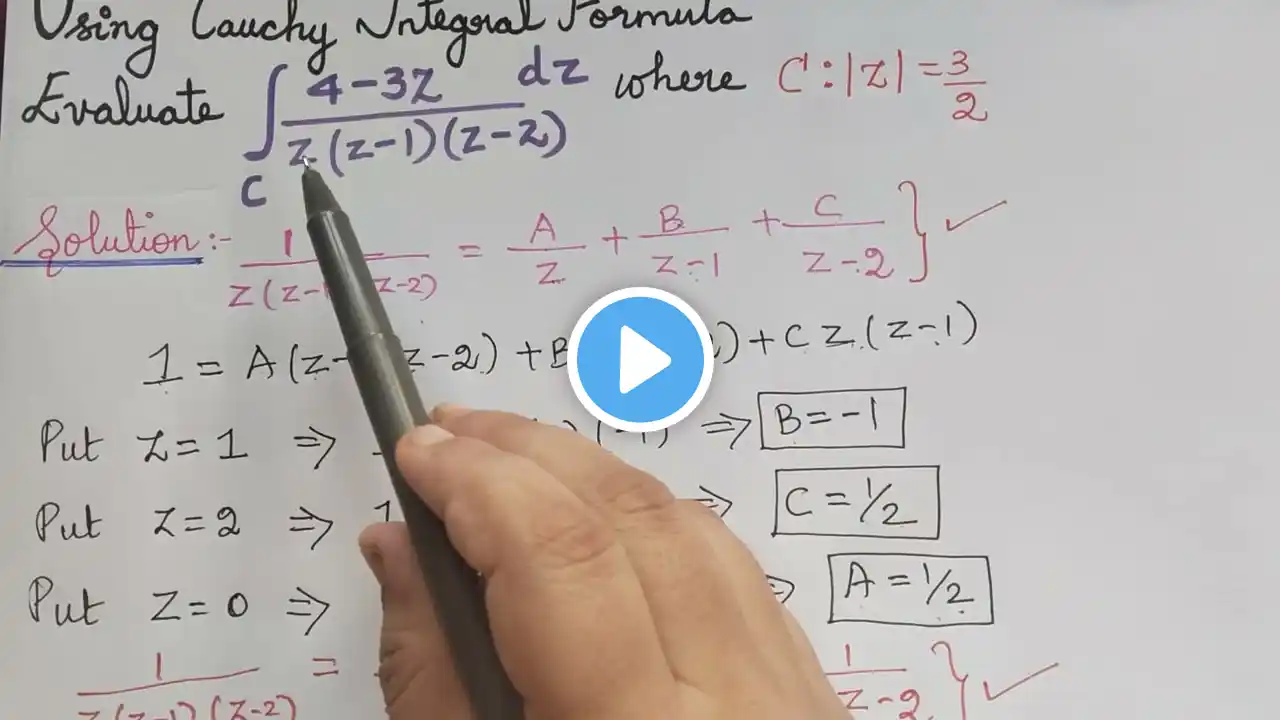 Using Cauchy Integral Formula
Evaluate ∫_C (4-3z)/(z(z-1)(z-2)) dz where C:|z|=3/2
Solution:- 1/(z(z-1 z-2)) = A/z + B/(z-1) + C/(z-2) } ✓
1 = A(z- z-2) + B ) + C z (z-1)
Put z=1 ⇒ 1 (-1) ⇒ B=-1
Put z=2 ⇒ 1 ⇒ C=1/2
Put z=0 ⇒ ⇒ A=1/2
1/(z(z-1)(z-2)) = 1/(z-2) } ✓